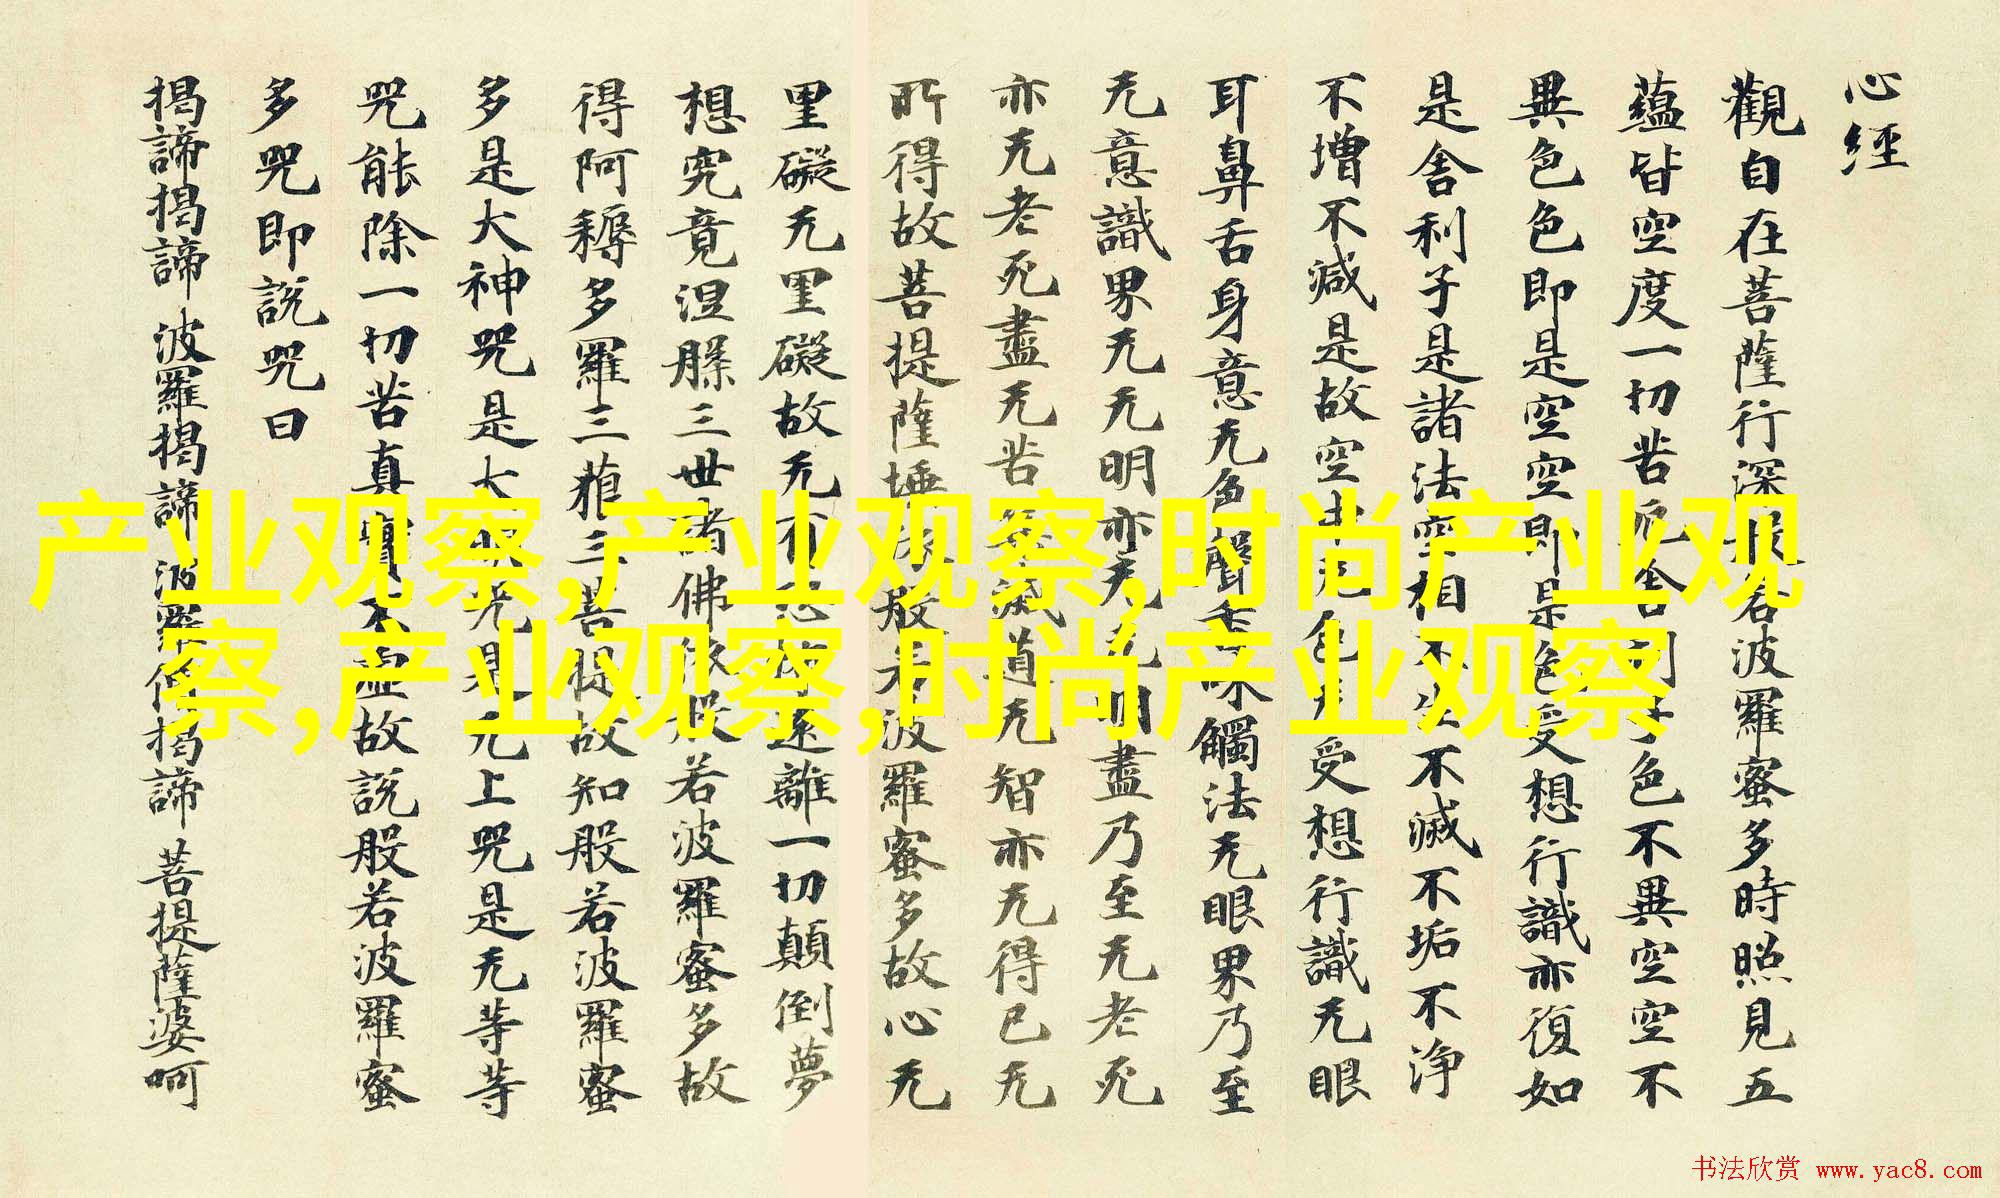 心經
觀自在菩薩行深般若波羅蜜多時照見五
蘊皆空度一切苦厄舍利子色不異空空不
異色色即是空空即是色受想行識亦復如
是舍利子是諸法空相不生不滅不垢不净
不增不減是故空中无色无受想行識无眼
耳鼻舌身意无色聲香味觸法无眼界乃至
无意識界无无明亦无无明盡乃至无老死
亦无老死盡无苦集滅道无智亦无得已无
所得故菩提薩埵依般若波羅蜜多故心无
罣礙无罣礙故无有恐怖遠離一切顛倒夢
想究竟涅槃三世諸佛依般若波羅蜜多故
得阿耨多羅三藐三菩提故知般若波羅蜜
多是大神咒是大明咒是无上咒是无等等
咒能除一切苦真實不虛故說般若波羅蜜
多咒即說咒曰
揭諦揭諦 波羅揭諦 波羅僧揭諦 菩提薩婆呵
产业观察,产业观察,时尚产业观
察,产业观察,时尚产业观察
书法欣赏 www.yac8.com